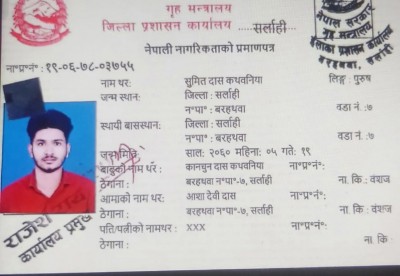 गृह मन्त्रालय
जिल्ला प्रशासन कार्यालय सर्लाही
नेपाली नागरिकताको प्रमाणपत्र
नेपाल सरकार
गृह मन्त्रालय
इलाका प्रशासन कार्यालय
बरहथवा, सर्लाही
ना॰प्र॰नं॰ : १९-०६-७८-०३७५५
नाम थर: सुमित दास कथवनिया लिङ्ग: पुरुष
जन्म स्थान: जिल्ला : सर्लाही
न॰पा॰ : बरहथवा वडा नं. :७
स्थायी बासस्थान: जिल्ला : सर्लाही
न॰पा॰ : बरहथवा वडा नं. :७
जन्ममिति: साल: २०६० महिना: ०५ गते: १९
बाबुको नाम थर : कानचुन दास कथवनिया ना॰प्र॰नं॰:
ठेगाना : बरहथवा न॰पा॰-७, सर्लाही ना. कि : वंशज
आमाको नाम थर: आशा देवी दास ना॰प्र॰नं॰:
ठेगाना : बरहथवा न॰पा॰-७, सर्लाही ना. कि : वंशज
पति/पत्नीको नामथर: XXX ना॰प्र॰नं॰:
ठेगाना : ना. कि :
राजेश राय
कार्यालय प्रमुख